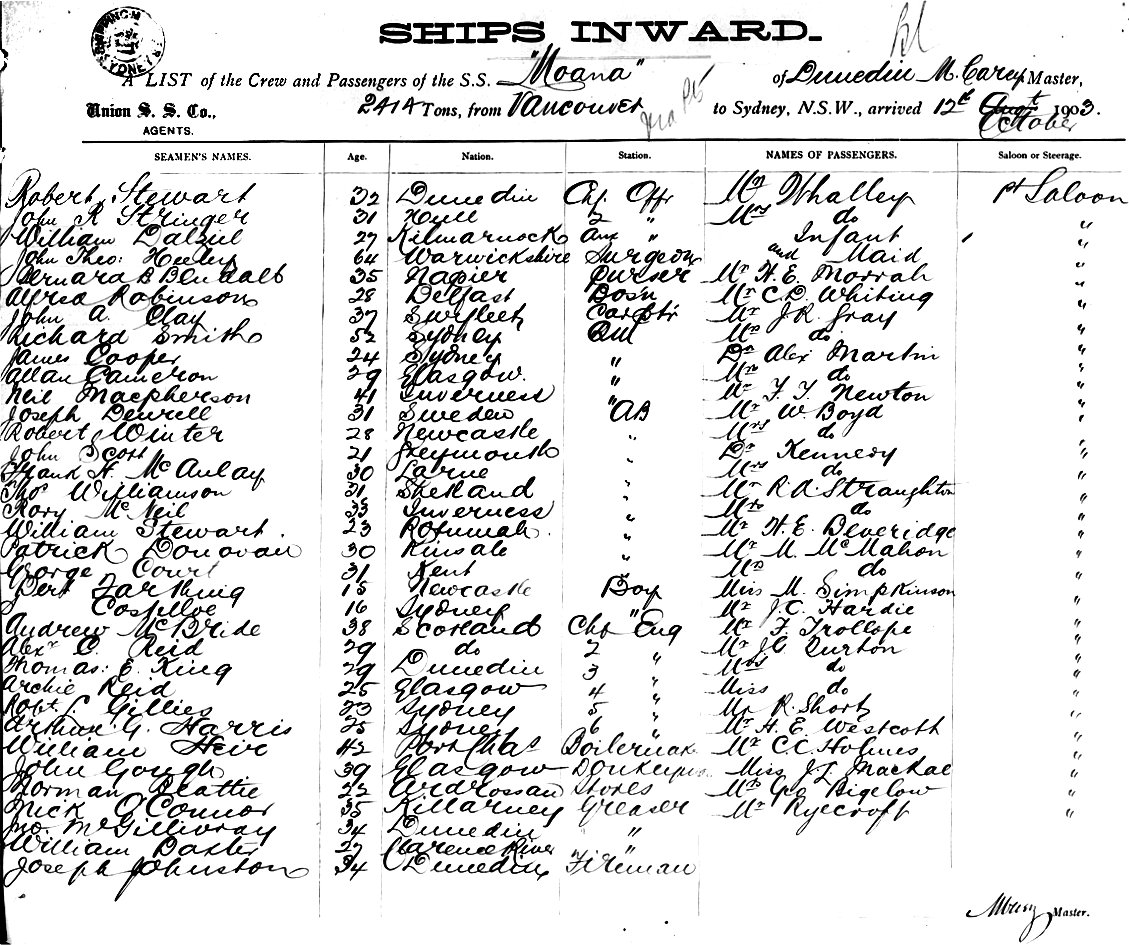 SHIPS INWARD.
A LIST of the Crew and Passengers of the S.S. "Moana" of Dunedin M. Carey Master,
Union S. S. Co., 2414 Tons, from Vancouver to Sydney, N.S.W., arrived 12th October 1903.
AGENTS.
SEAMEN'S NAMES. Age. Nation. Station. NAMES OF PASSENGERS. Saloon or Steerage.
Robert Stewart 32 Dunedin Chf Offr Mr Whalley Saloon
John R Stringer 31 Hull 2 " Mrs do "
William Dalziel 27 Kilmarnock " Infant "
John Theo: Heeley 64 Warwickshire Surgeon and Maid "
Bernard B Bendall 35 Napier Purser Mr H. E. Morrah "
Alfred Robinson 28 Belfast Bosn Mr C. D. Whiting "
John A. Clay 37 Carptr Mr J. R. Gray "
Richard Smith 52 Sydney QM do "
James Cooper 24 Sydney " Dr Alex Martin "
Allan Cameron 29 Glasgow. " Mrs do "
Neil Macpherson 41 Inverness " Mr F. F. Newton "
Joseph Dewrell 31 Sweden "AB Mr W. Boyd "
Robert Winter 28 Newcastle " Mrs do "
John Scott 21 Greymouth " Dr Kennedy "
Frank H McAulay 30 Larne " Mrs do "
Tho Williamson 31 Shetland " Mr R. A. Straughton "
Rory McNeil 33 Inverness " Mrs do "
William Stewart. 23 Rotumah " Mr H. E. Beveridge "
Patrick Donovan 30 Kinsale " Mr M. McMahon "
George Court 31 Kent " Mrs do "
Bert Farthing 15 Newcastle Boy Miss M. Simpkinson "
Costelloe 16 Sydney " Mr J. C. Hardie "
Andrew McBride 38 Scotland Chf Eng Mr F. Trollope "
Alexr C. Reid 29 do 2 " Mr J. C. Burton "
Thomas: E. King 29 Dunedin 3 " Mrs do "
Archie Reid 25 Glasgow 4 " Miss do "
Robt. L Gillies 23 Sydney 5 " Mr R. Short "
Arthur. G. Harris 25 Sydney 6 " Mr H. E. Westcott "
William Heir 42 Port Chas Boilermak Mr C. C. Holmes "
John Gough 39 Glasgow Miss J. J. Mackae "
Norman Beattie 22 Ardrossan Stores Geo Bigelow "
Mick O'Connor 35 Killarney Greaser Mr Rycroft "
Jno. McGillivray 34 Dunedin "
William Baxter 27 Clarence River "
Joseph Johnston 34 Dunedin Fireman
Master.